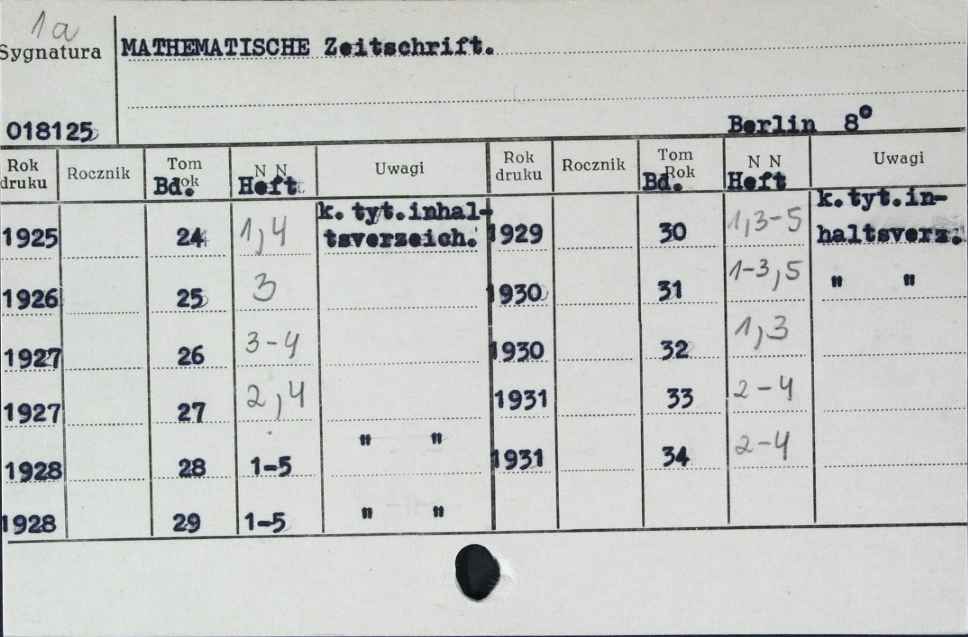 1a
Sygnatura MATHEMATISCHE Zeitschrift.
018125 Berlin 8°
Rok druku Rocznik Tom Rok Bd. N N Heft Uwagi Rok druku Rocznik Tom Rok Bd. N N Heft Uwagi
1925 24 1,4 k. tyt. inhal- tsverzeich. 1929 30 1,3-5 k. tyt. in- haltsverz.
1926 25 3 1930 31 1-3,5 " "
1927 26 3-4 1930 32 1,3
1927 27 2,4 1931 33 2-4
1928 28 1-5 " " 1931 34 2-4
1928 29 1-5 " "